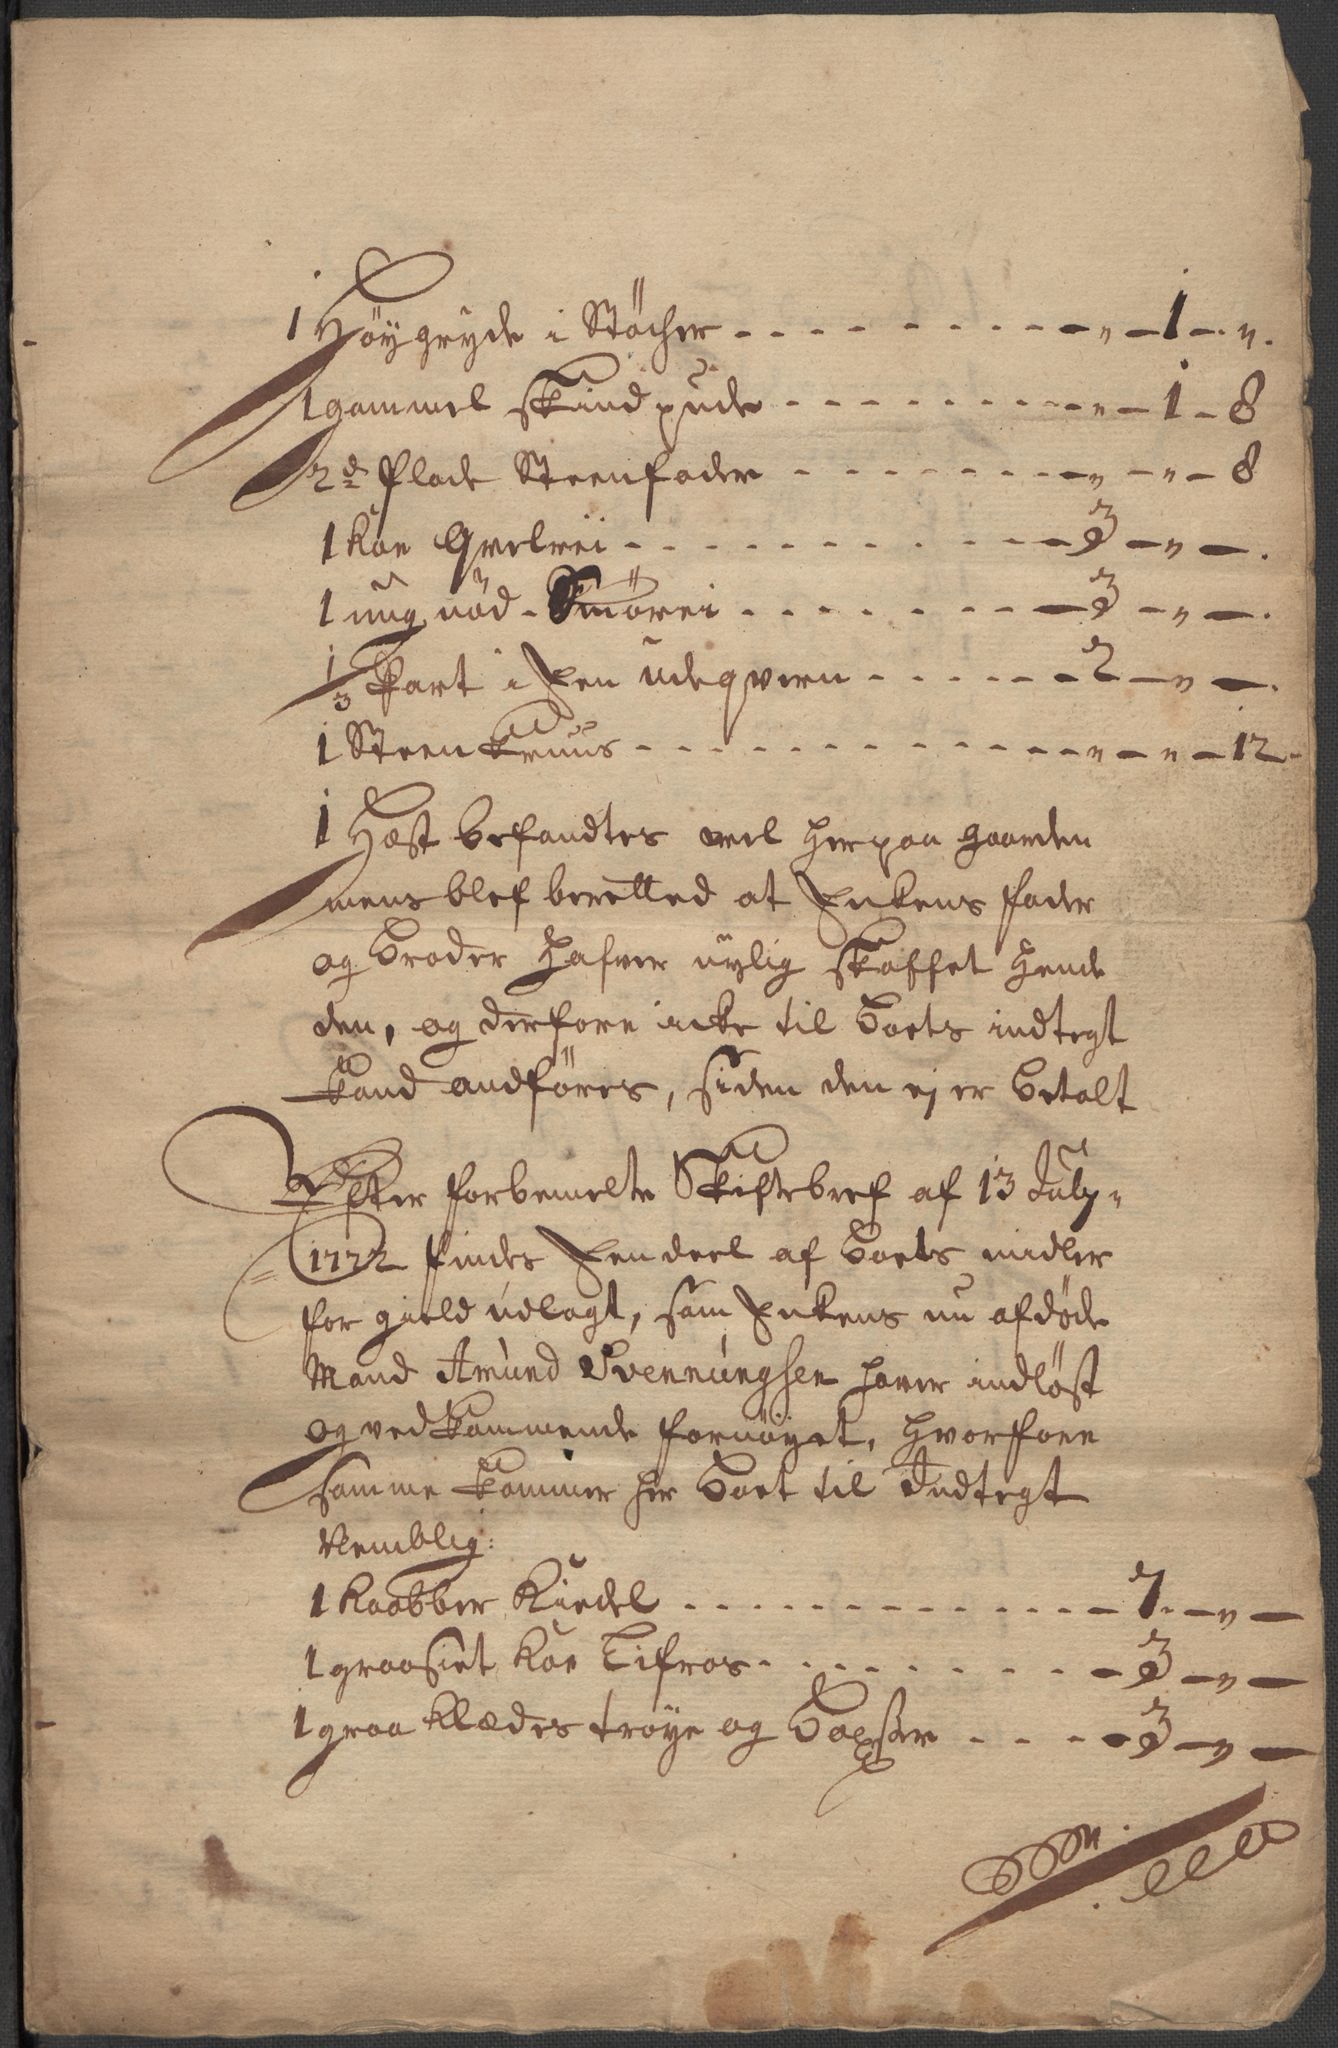 1 Høygryde i Støcher - - - " - 1 - "
1 gammel Skindpude - - - " - 1 - 8
2 de flade Steenfade - - - " - " - 8
1 Koe Qvelrei - - - 3 - " -
1 ung nød - Smørei - - - 3 - " -
1/3 Part i Een Udeqvern - - - 2 - " -
1 Steen Kruus - - - " - " - 12 -
1 Hæst befandtes vel her paa gaarden
mens blef beretted at Enkens fader
og Broder hafver nylig skaffet hende
den, og derfore icke til Boets indtegt
kand andføres, siden den ej er betalt
Efter forbemelte Skiftebref af 13 July
1722 findes Een deel af Boets midler
for gield udlagt, som Enkens nu afdøde
Mand Amund Svennungsen haver indløst
og vedkommende fornøyet, hvorfore
samme kommer her Boet til Indtegt
Nemblig:
1 Kaabber Kiedel - - - 7 - " -
1 graasiet Koe Lifros - - - 3 - " -
1 graa Klædes trøye og Boxser - - - 3 - " -